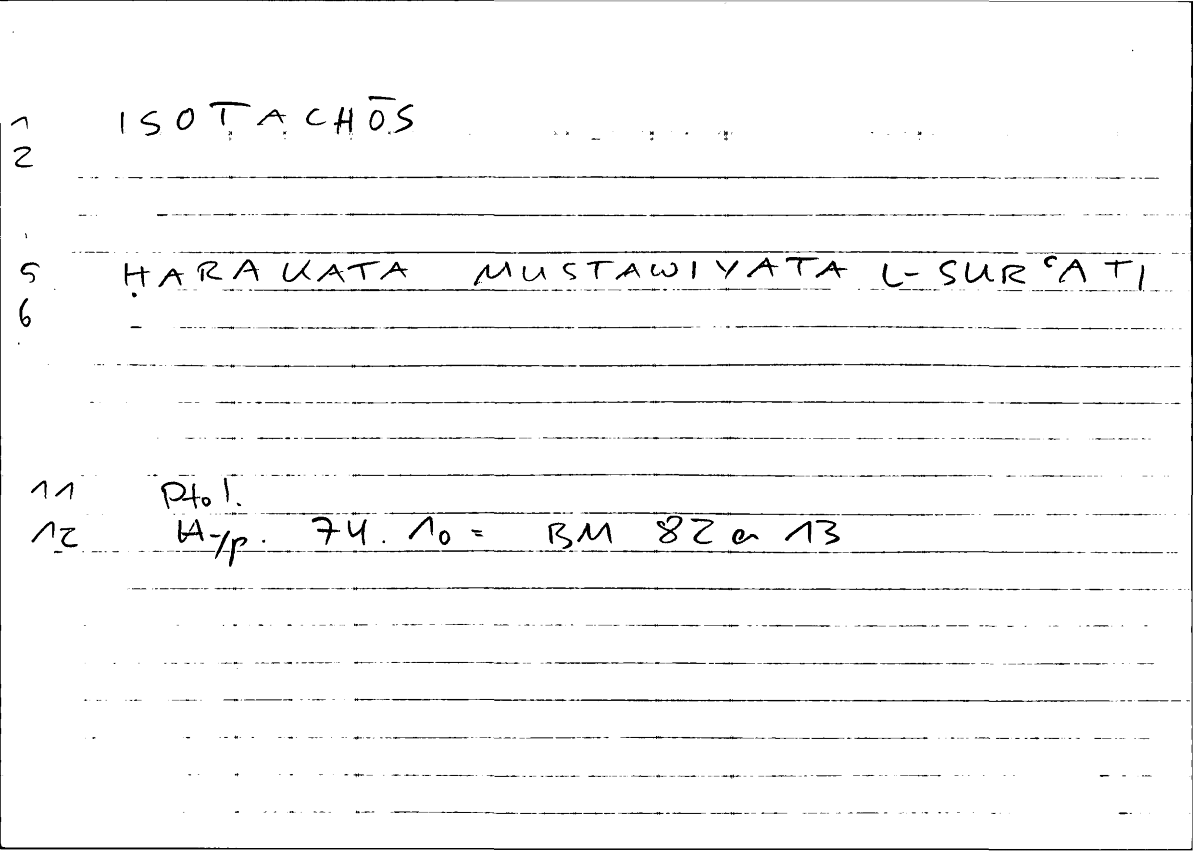 1 ISOTACHŌS
2
5 ḤARAKATA MUSTAWIYATA L-SURʿATI
6
11 Ptol.
12 Hyp. 74.10 = BM 82 a 13